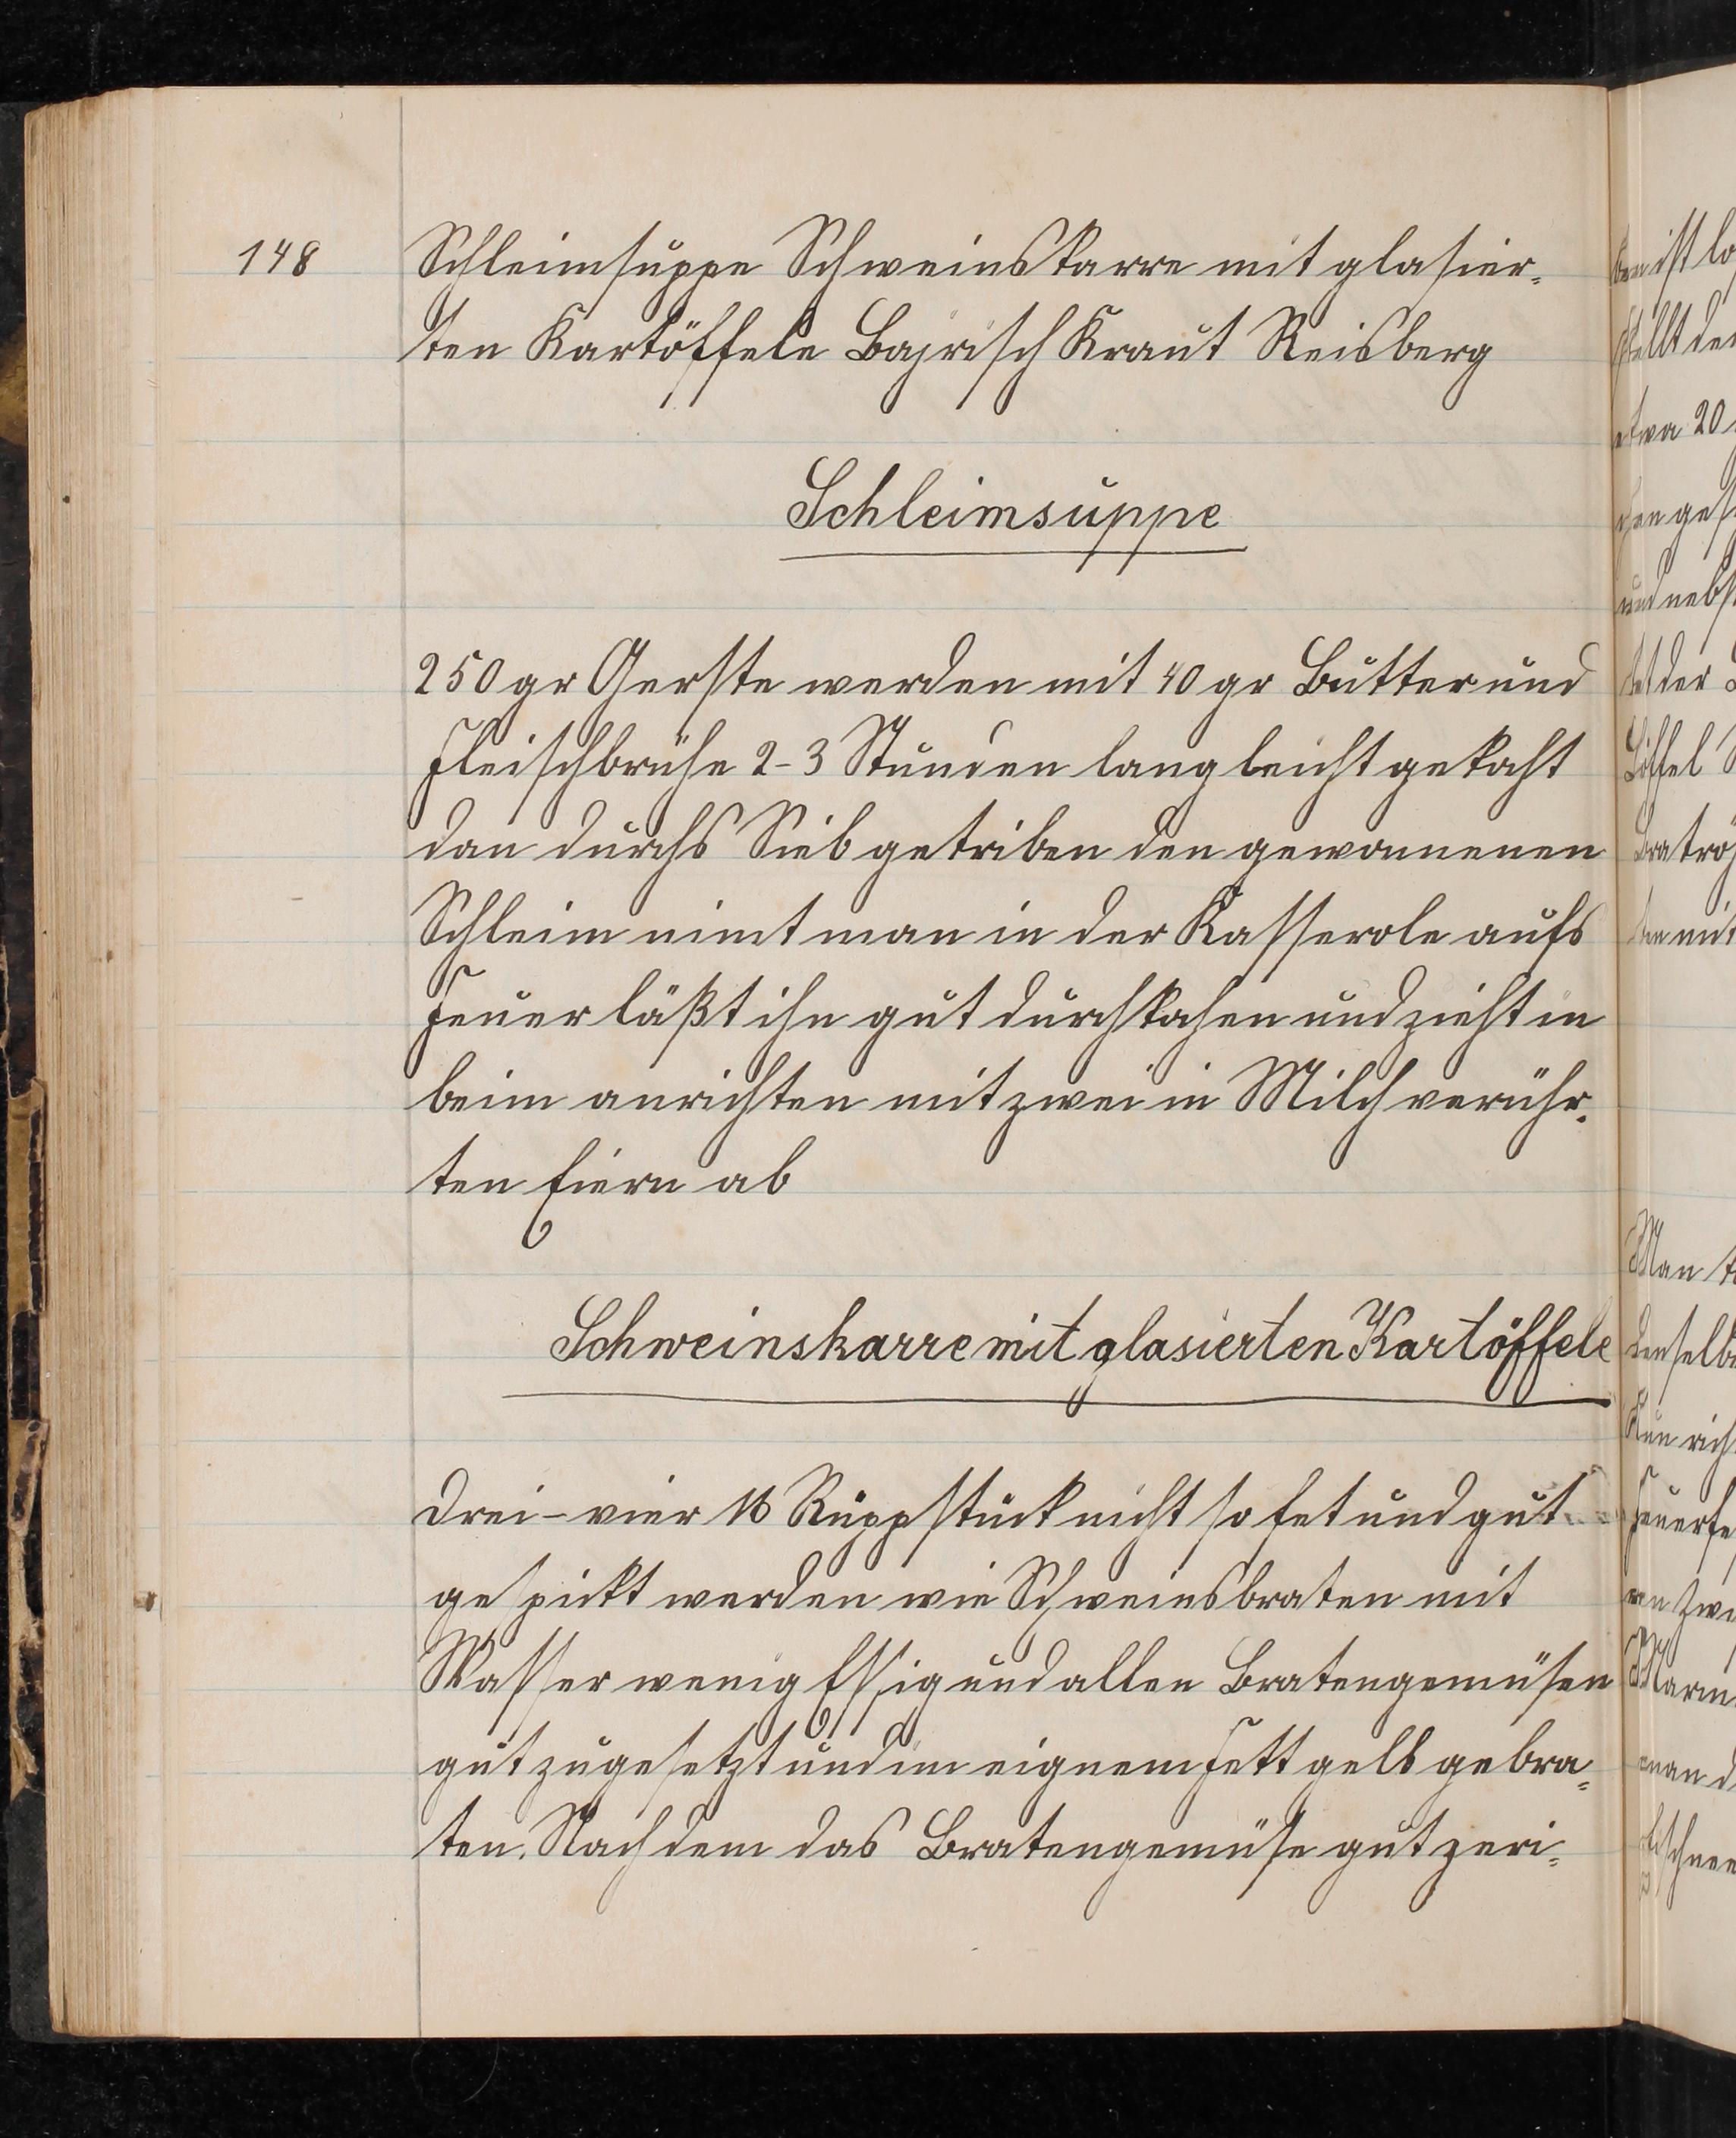 148
Schleimsuppe Schweinskarre mit glasier=
ten Kartöffele Bajrisch Kraut Reisberg
Schleimsuppe
250 gr Gerste werden mit 40 gr Butter und
Fleischbrühe 2-3 Stunden lang leicht gekoht
dan durchs Sieb getriben den gewonnenen
Schleim nimt man in der Kasserole aufs
Feuer läßt ihn gut durchkohen und zieht in
beim anrichten mit zwei in Milch verühr=
ten Eiern ab
Schweinskarre mit glasierten Kartöffele
Drei - vier ℔ Rüppstück nicht so fet und gut
gespickt werden wie Schweinsbraten mit
Wasser wenig Essig und allen Bratengemüsen
gut zugesetzt und im eignem Fett gelb gebra=
ten. Nachdem das Bratengemüse gut zeri=
ist
etwa 20
und
der
Löffel
mit
Man
man